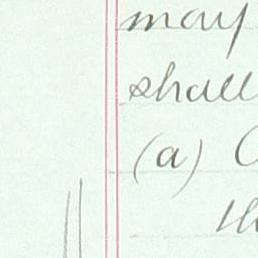 may
shall
(a)